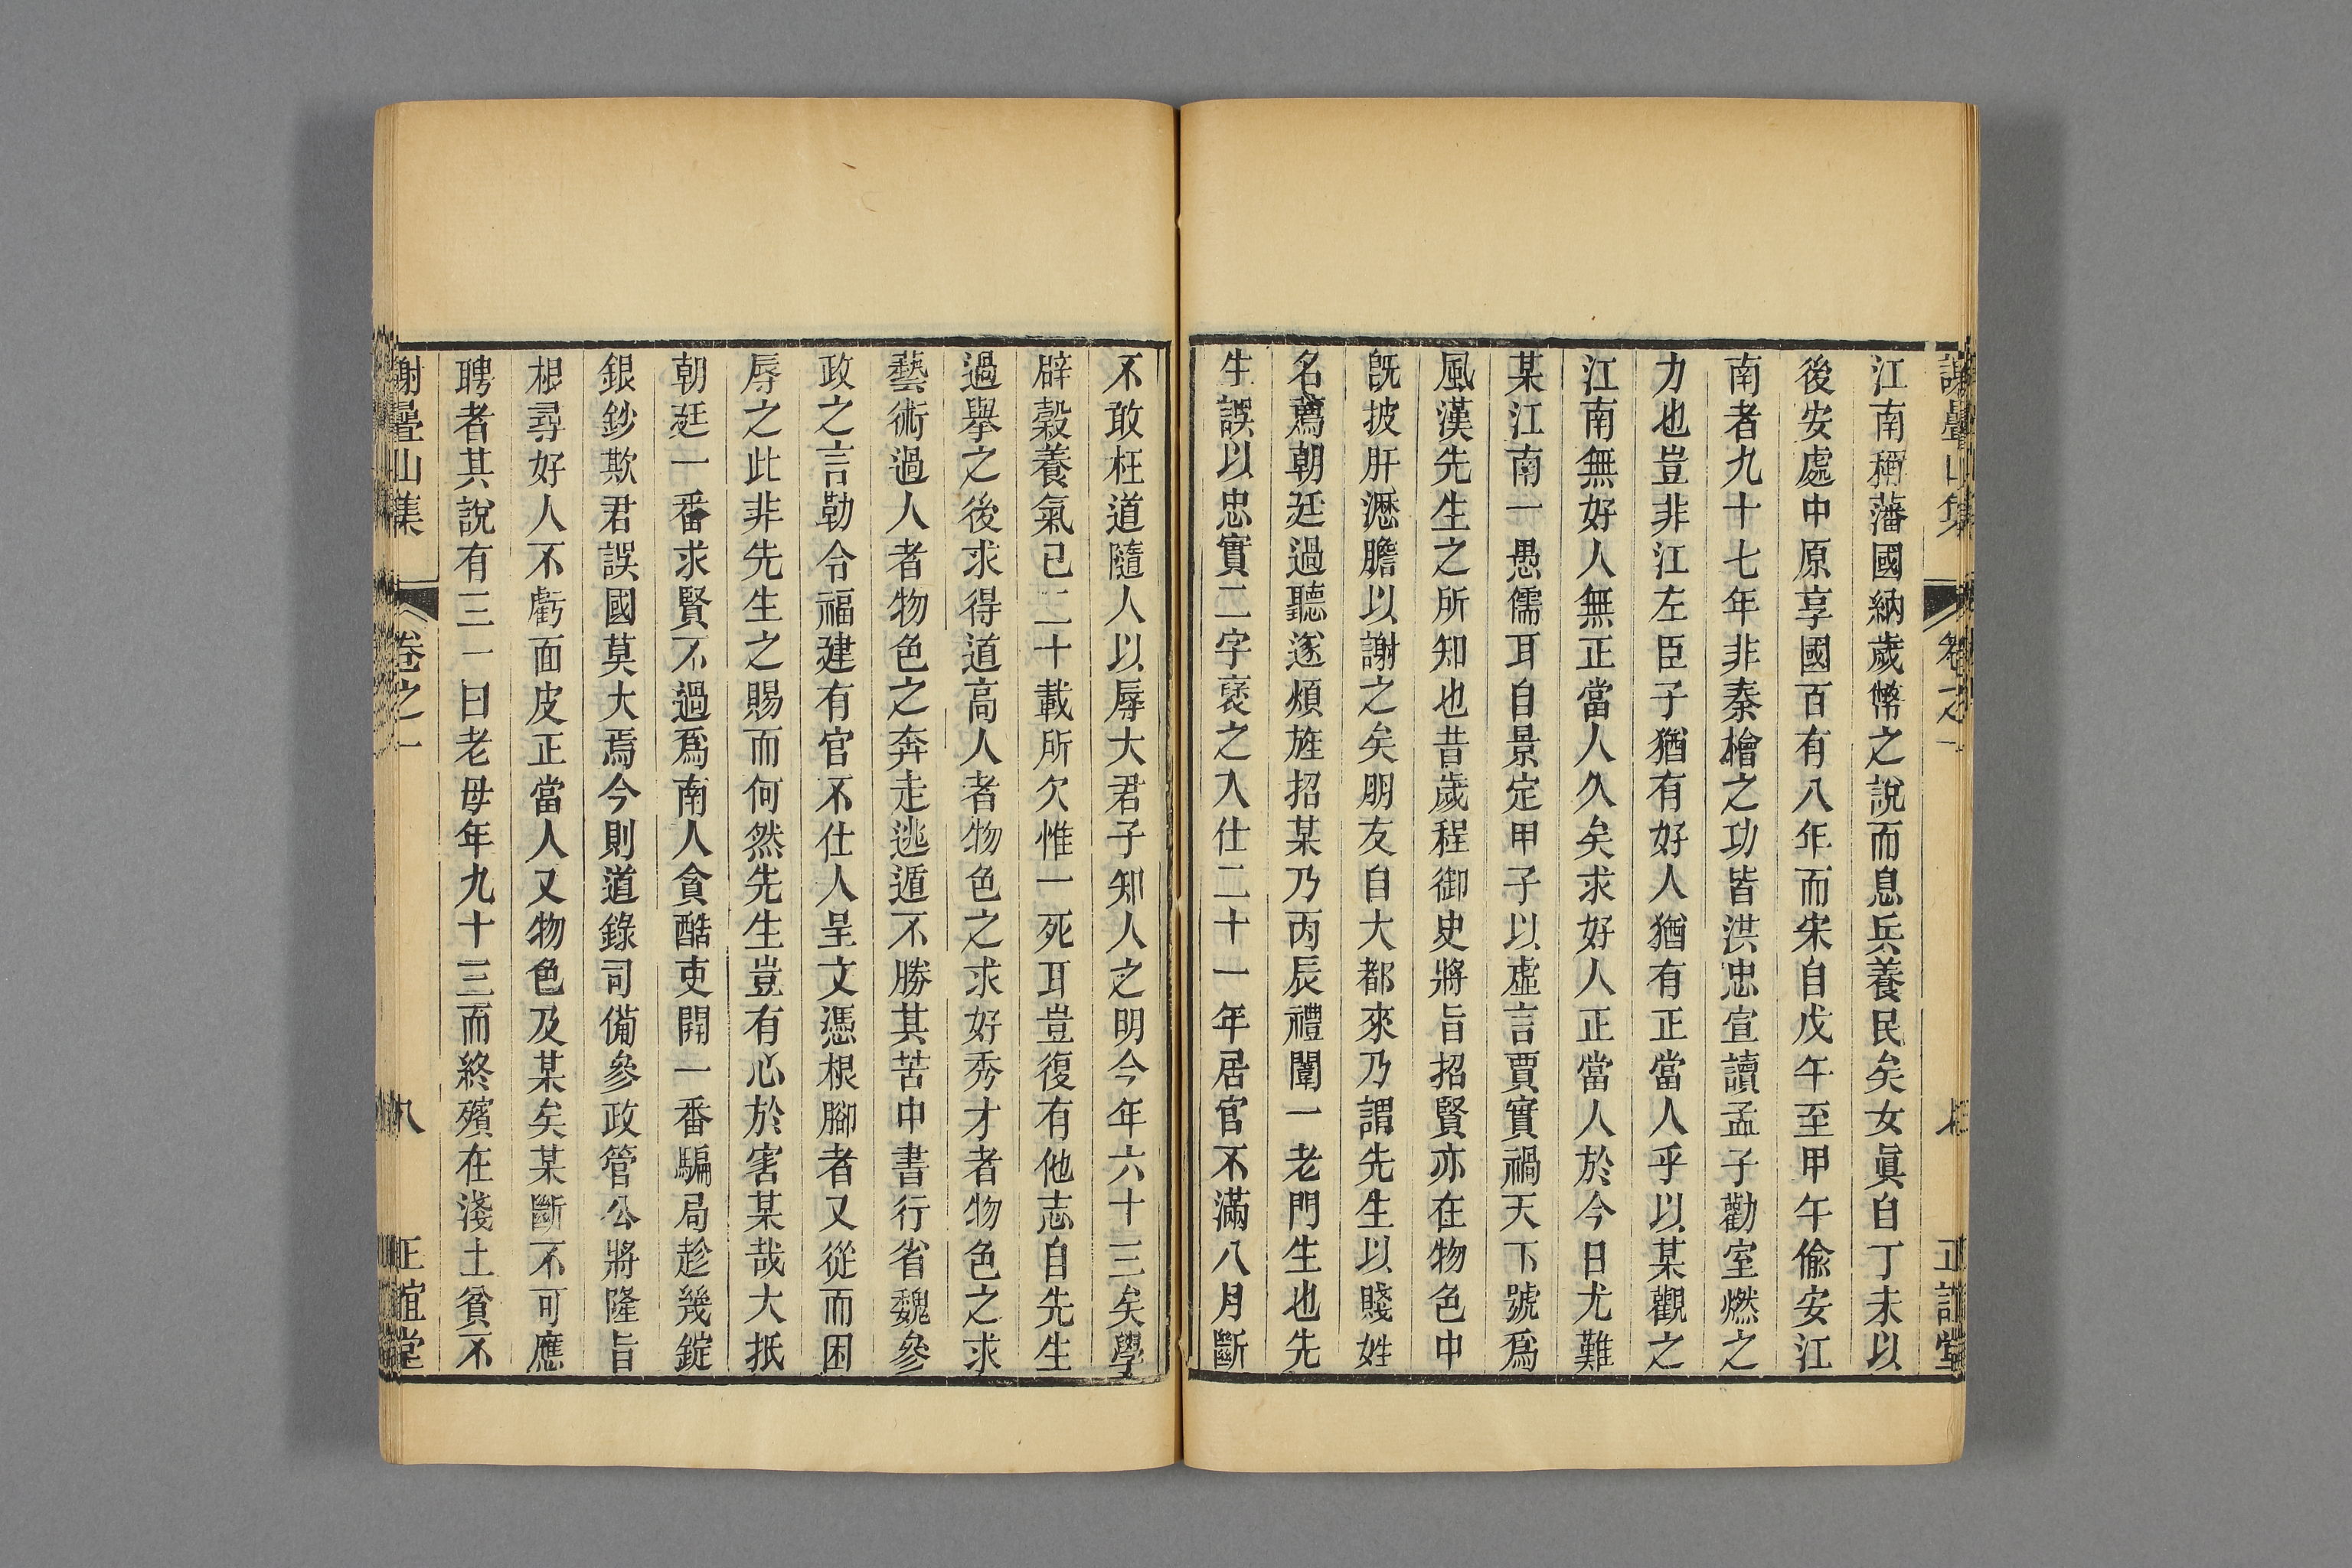 謝疊山集 卷之一 七 正誼堂
江南稱藩國納歲幣之說而息兵養民矣女眞自丁未以
後安處中原享國百有八年而宋自戊午至甲午偸安江
南者九十七年非秦檜之功皆洪忠宣讀孟子勸室燃之
力也豈非江左臣子猶有好人猶有正當人乎以某觀之
江南無好人無正當人久矣求好人正當人於今日尤難
某江南一愚儒耳自景定甲子以虛言賈實禍天下號爲
風漢先生之所知也昔歲程御史將旨招賢亦在物色中
旣披肝瀝膽以謝之矣朋友自大都來乃謂先生以賤姓
名薦朝廷過聽遂煩旌招某乃丙辰禮闈一老門生也先
生誤以忠實二字褒之入仕二十一年居官不滿八月斷
不敢枉道隨人以辱大君子知人之明今年六十三矣學
辟穀養氣已二十載所欠惟一死耳豈復有他志自先生
過舉之後求得道高人者物色之求好秀才者物色之求
藝術過人者物色之奔走逃遁不勝其苦中書行省魏參
政之言勒令福建有官不仕人呈文憑根腳者又從而困
辱之此非先生之賜而何然先生豈有心於害某哉大抵
朝廷一番求賢不過爲南人貪酷吏開一番騙局趁幾錠
銀鈔欺君誤國莫大焉今則道錄司備參政管公將隆旨
根尋好人不虧面皮正當人又物色及某矣某斷不可應
聘者其說有三一曰老母年九十三而終殯在淺土貧不
謝疊山集 卷之一 八 正誼堂